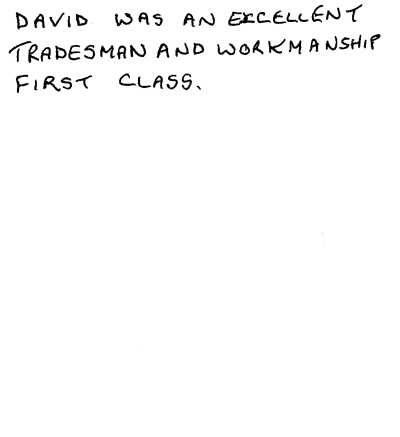 DAVID WAS AN EXCELLENT
TRADESMAN AND WORKMANSHIP
FIRST CLASS.